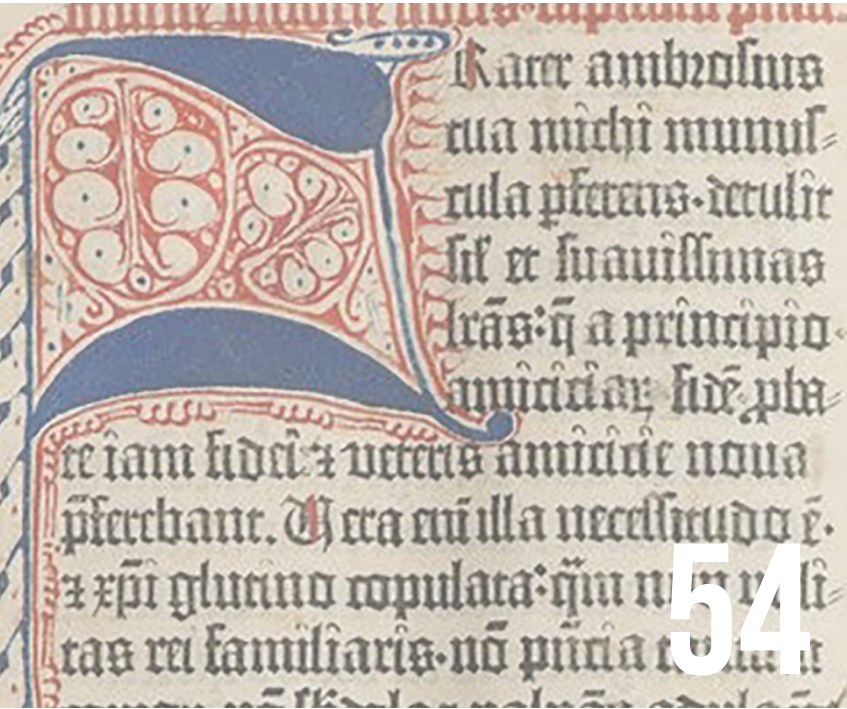 FRater ambrosius
tua michi munus⸗
cula pferens·detulit
sil' et suauissimas
lrās:q̄ a principio
amiciciaꝝ fidē pba⸗
te iam fidei ⁊ veteris amicicie noua
p̄ferebant. Vera eni illa necessitudo ē·
⁊ xp̄i glutino copulata:q̄m
tas rei familiaris·nō pn̄cia
54